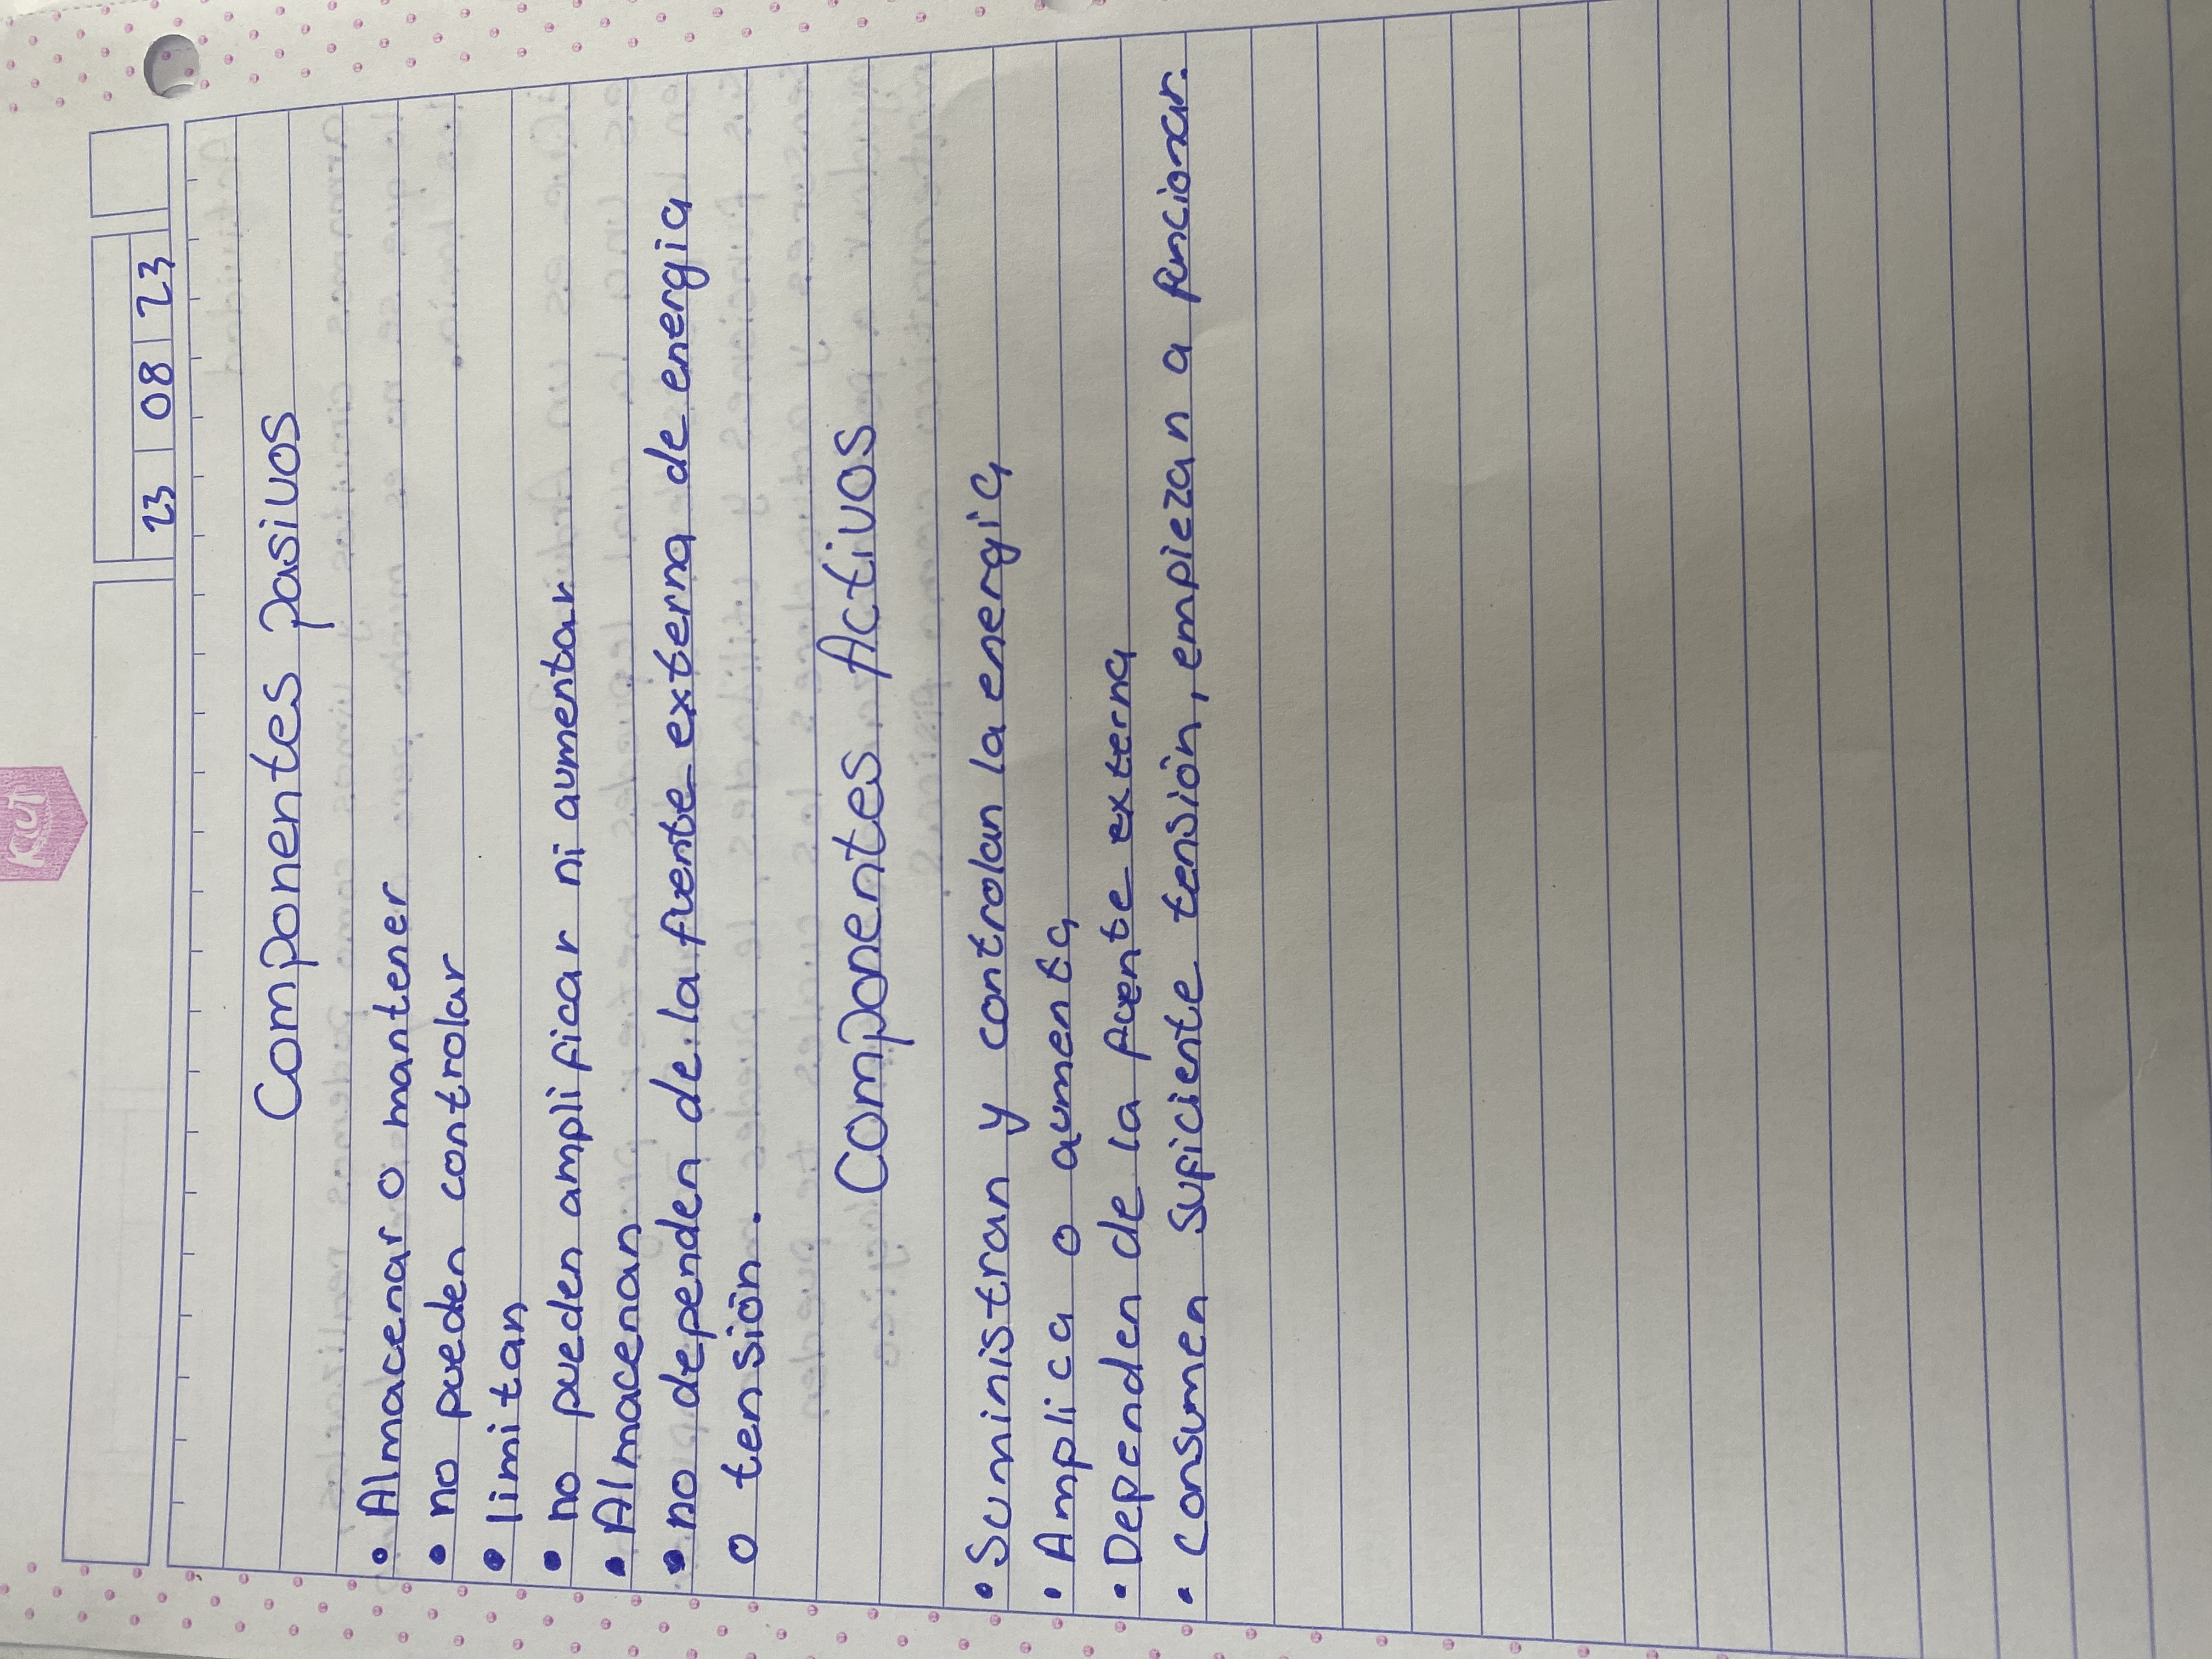 KUT
23 08 23
Componentes pasivos
• Almacenar o mantener
• no pueden controlar
• limitan
• no pueden amplificar ni aumentar
• Almacenan
• no dependen de la fuente externa de energia
o tensión.
Componentes Activos
• Suministran y controlan la energia
• Amplica o aumenta
• Dependen de la fuente externa
• Consumen suficiente tensión, empiezan a funcionar.